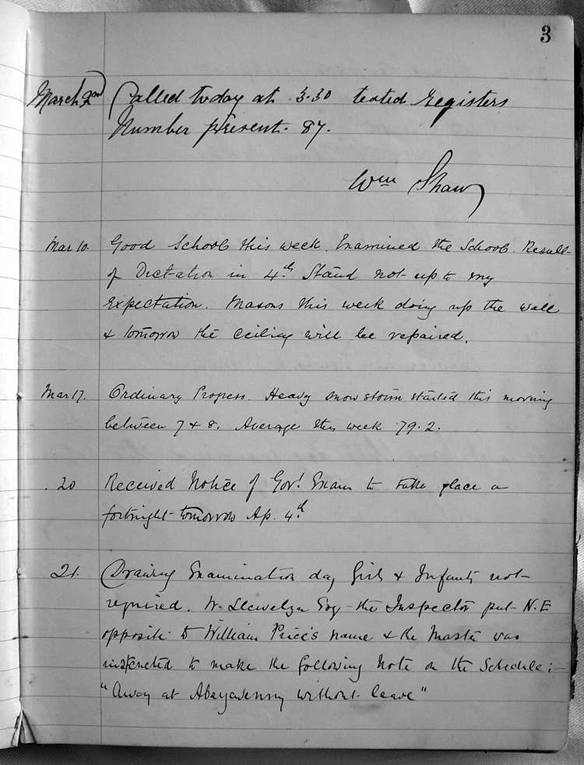 3
March 2nd Called today at 3.30 tested Registers
Number present. 87.
Wm Shaw
Mar 10. Good School this week. Examined the School. Result
of Dictation in 4th Stand not up to my
expectation. Masons this week doing up the wall
& tomorrow the ceiling will be repaired.
Mar 17. Ordinary Progress. Heavy snowstorm started this morning
between 7 & 8. Average this week 79.2.
20 Received Notice of Govt. Exam to take place a
fortnight tomorrow Ap. 4th
21. Drawing Examination day Girls & Infants not
required. W. Llewelyn Esq the Inspector put N.E
opposite to William Price's name & the Master was
instructed to make the following note on the Schedule:-
"Away at Abergavenny without leave"